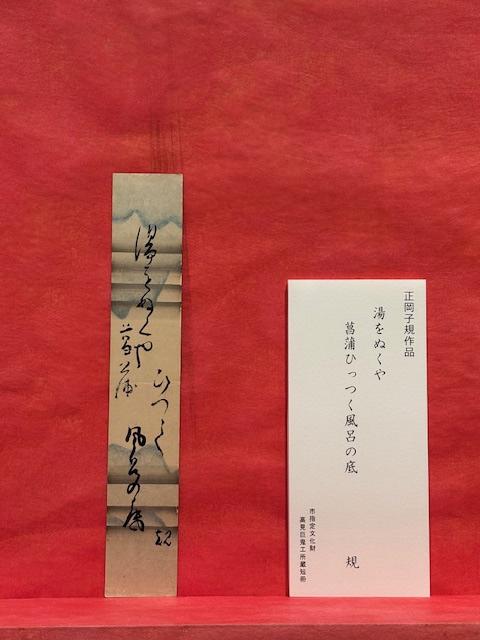 正岡子規作品
湯をぬくや
菖蒲ひっつく風呂の底
規
市指定文化財
高見巨鬼工所蔵短冊
湯をぬくや
菖蒲
ひつつく
風呂の底
規